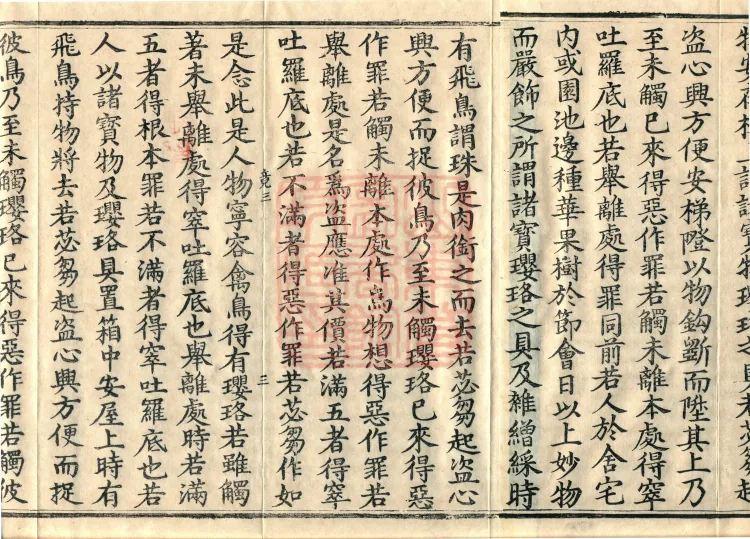 盜心興方便安梯隥以物鈎斷而陞其上乃
至未觸已來得惡作罪若觸未離本處得窣
吐羅底也若舉離處得罪同前若人於舍宅
內或園池邊種華果樹於節會日以上妙物
而嚴飾之所謂諸寶瓔珞之具及雜繒綵時
有飛鳥謂珠是肉銜之而去若苾芻起盜心
興方便而捉彼鳥乃至未觸瓔珞已來得惡
作罪若觸未離本處作鳥物想得惡作罪若
舉離處是名爲盜應准其價若滿五者得窣
吐羅底也若不滿者得惡作罪若苾芻作如
竟三 三
是念此是人物寧容禽鳥得有瓔珞若雖觸
著未舉離處得窣吐羅底也舉離處時若滿
五者得根本罪若不滿者得窣吐羅底也若
人以諸寶物及瓔珞具置箱中安屋上時有
飛鳥持物將去若苾芻起盜心興方便而捉
彼鳥乃至未觸瓔珞已來得惡作罪若觸彼